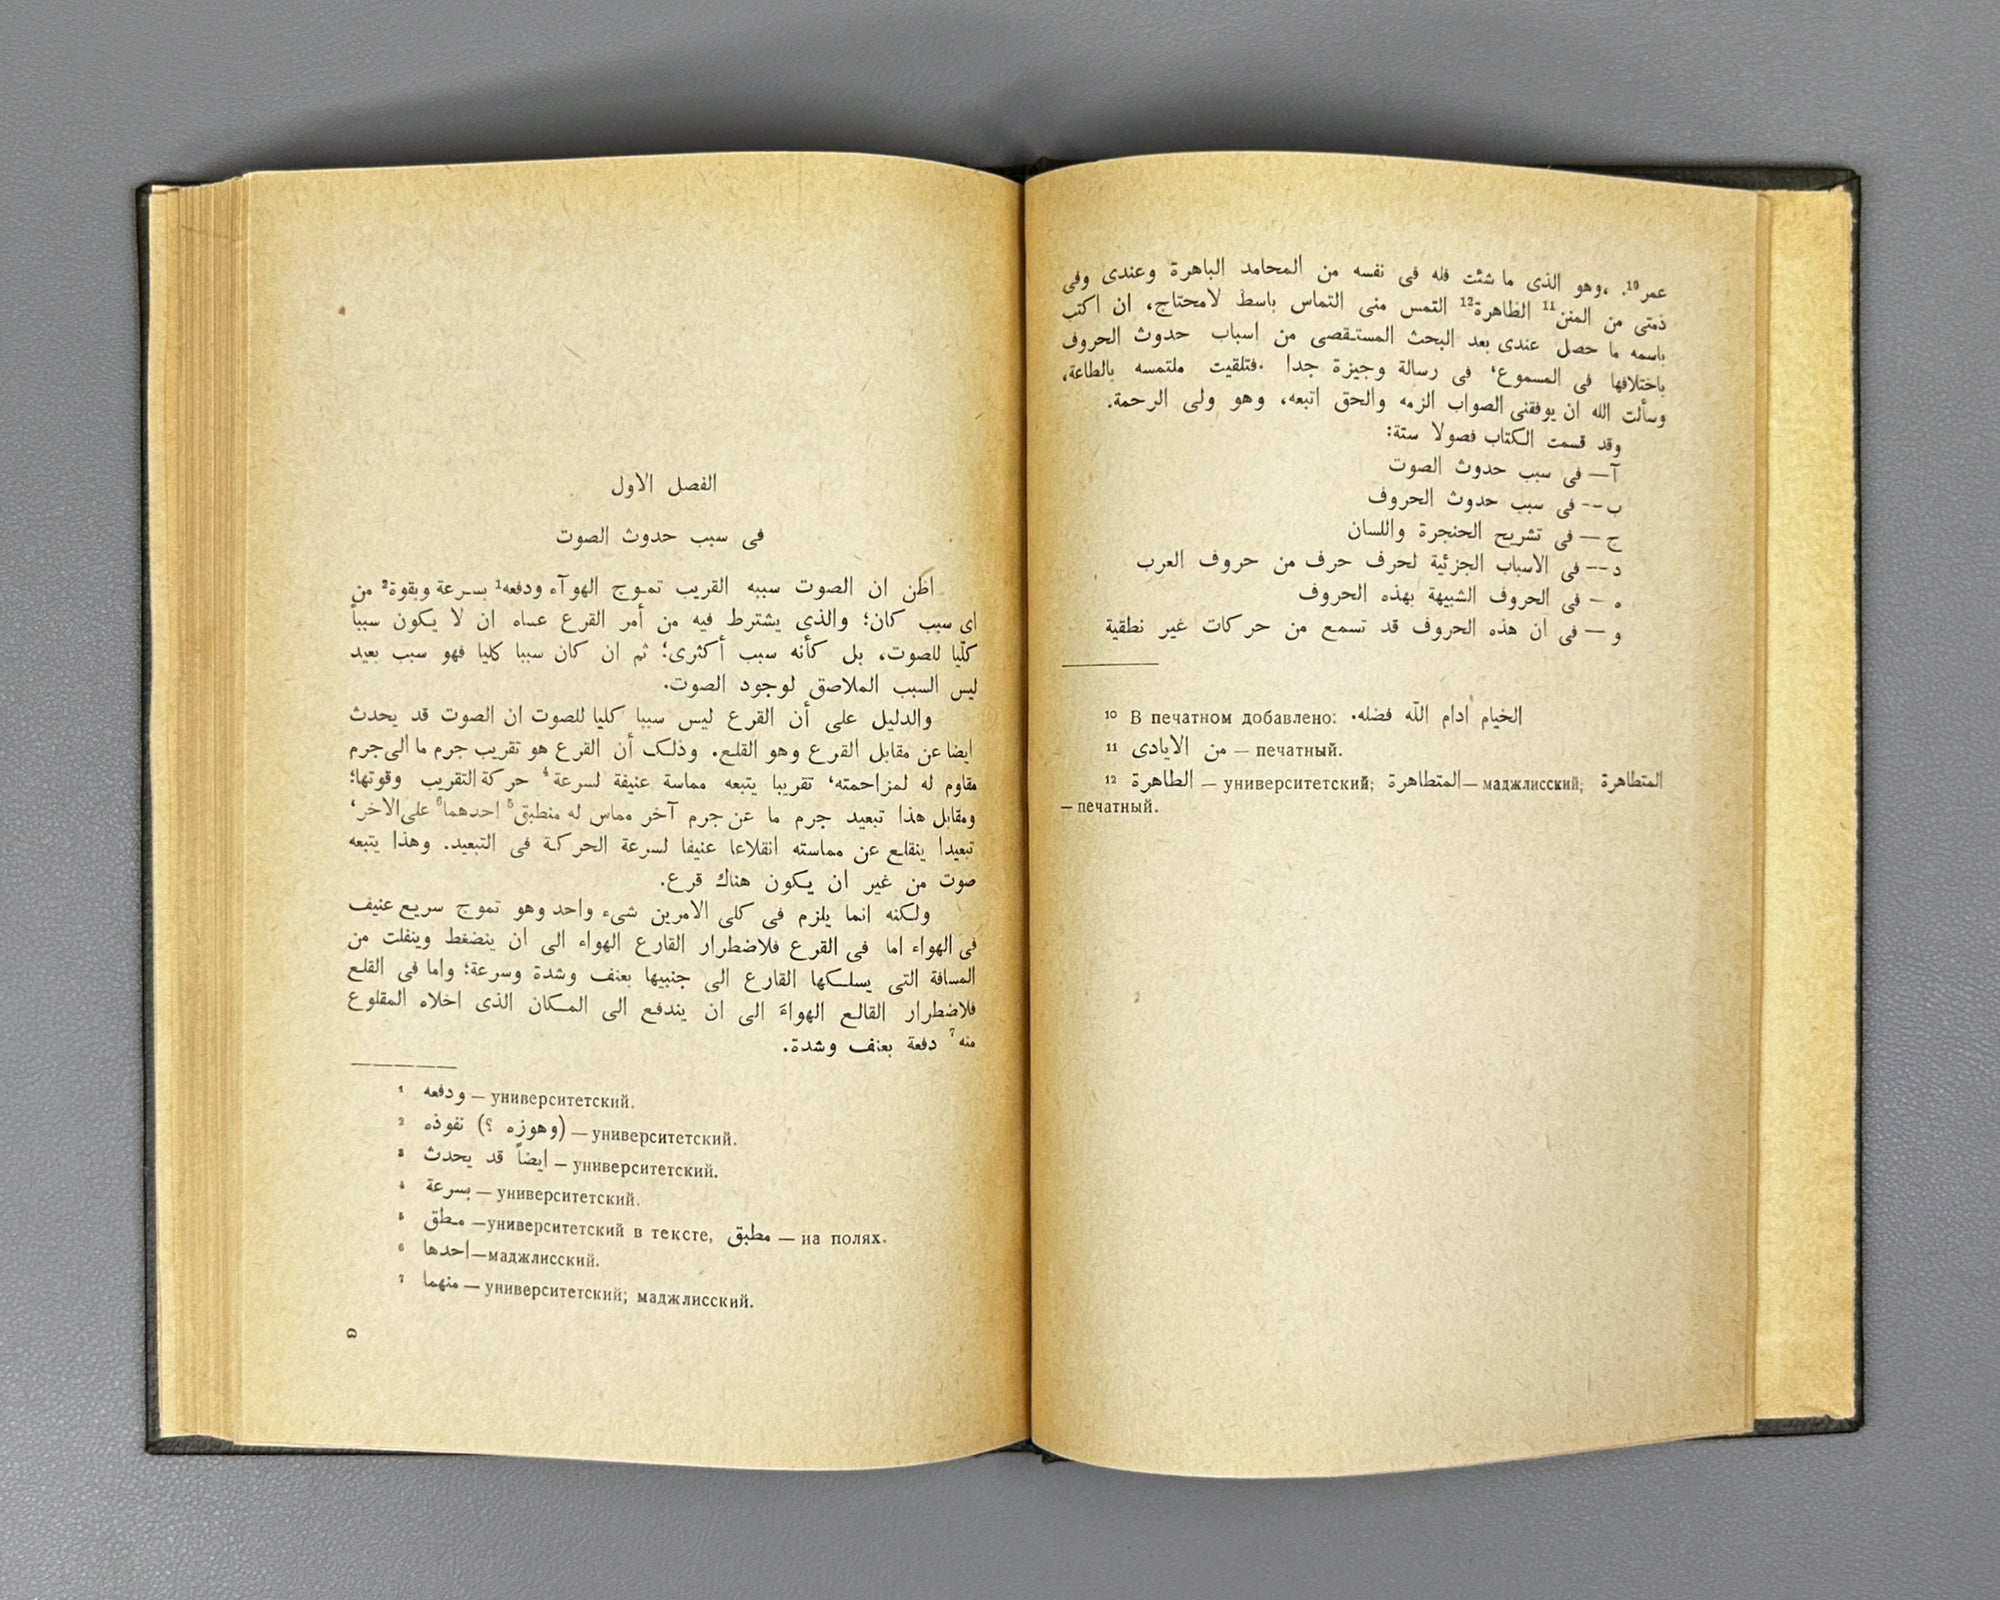 عمر¹⁰. ،وهو الذى ما شئت قله فى نفسه من المحامد الباهرة وعندى وفى
ذمتى من المنن¹¹ الظاهرة¹² التمس منى التماس باسط لامحتاج، ان اكتب
باسمه ما حصل عندى بعد البحث المستقصى من اسباب حدوث الحروف
باختلافها فى المسموع، فى رسالة وجيزة جدا .فتلقيت ملتمسه بالطاعة،
وسألت الله ان يوفقنى الصواب الزمه والحق اتبعه، وهو ولى الرحمة.
وقد قسمت الكتاب فصولا ستة:
آ— فى سبب حدوث الصوت
ب-- فى سبب حدوث الحروف
ج — فى تشريح الحنجرة واللسان
د-- فى الاسباب الجزئية لحرف حرف من حروف العرب
ه — فى الحروف الشبيهة بهذه الحروف
و — فى ان هذه الحروف قد تسمع من حركات غير نطقية
¹⁰ В печатном добавлено: الخيام ادام الله فضله.
¹¹ من الايادى — печатный.
¹² الطاهرة — университетский; المتظاهرة — маджлисский; المتطاهرة
— печатный.
الفصل الاول
فى سبب حدوث الصوت
اظن ان الصوت سببه القريب تموج الهوآء ودفعه¹ بسرعة وبقوة² من
اى سبب كان؛ والذى يشترط فيه من أمر القرع عساه ان لا يكون سبباً
كلّيا للصوت، بل كأنه سبب أكثرى؛ ثم ان كان سببا كليا فهو سبب بعيد
ليس السبب الملاصق لوجود الصوت.
والدليل على أن القرع ليس سببا كليا للصوت ان الصوت قد يحدث
ايضا عن مقابل القرع وهو القلع. وذلك أن القرع هو تقريب جرم ما الى جرم
مقاوم له لمزاحمته، تقريبا يتبعه مماسة عنيفة لسرعة⁴ حركة التقريب وقوتها؛
ومقابل هذا تبعيد جرم ما عن جرم آخر مماس له منطبق⁵ احدهما⁶ على الاخر،
تبعيدا ينقلع عن مماسته انقلاعا عنيفا لسرعة الحركة فى التبعيد. وهذا يتبعه
صوت من غير ان يكون هناك قرع.
ولكنه انما يلزم فى كلى الامرين شىء واحد وهو تموج سريع عنيف
فى الهواء اما فى القرع فلاضطرار القارع الهواء الى ان ينضغط وينفلت من
المسافة التى يسلكها القارع الى جنبيها بعنف وشدة وسرعة؛ واما فى القلع
فلاضطرار القالع الهواءَ الى ان يندفع الى المكان الذى اخلاه المقلوع
منه⁷ دفعة بعنف وشدة.
¹ ودفعه — университетский.
² (وهوزه ؟) تفوذه — университетский.
³ ايضاً قد يحدث — университетский.
⁴ بسرعة — университетский.
⁵ مطق — университетский в тексте, مطبق — на полях.
⁶ احدها — маджлисский.
⁷ منهما — университетский; маджлисский.